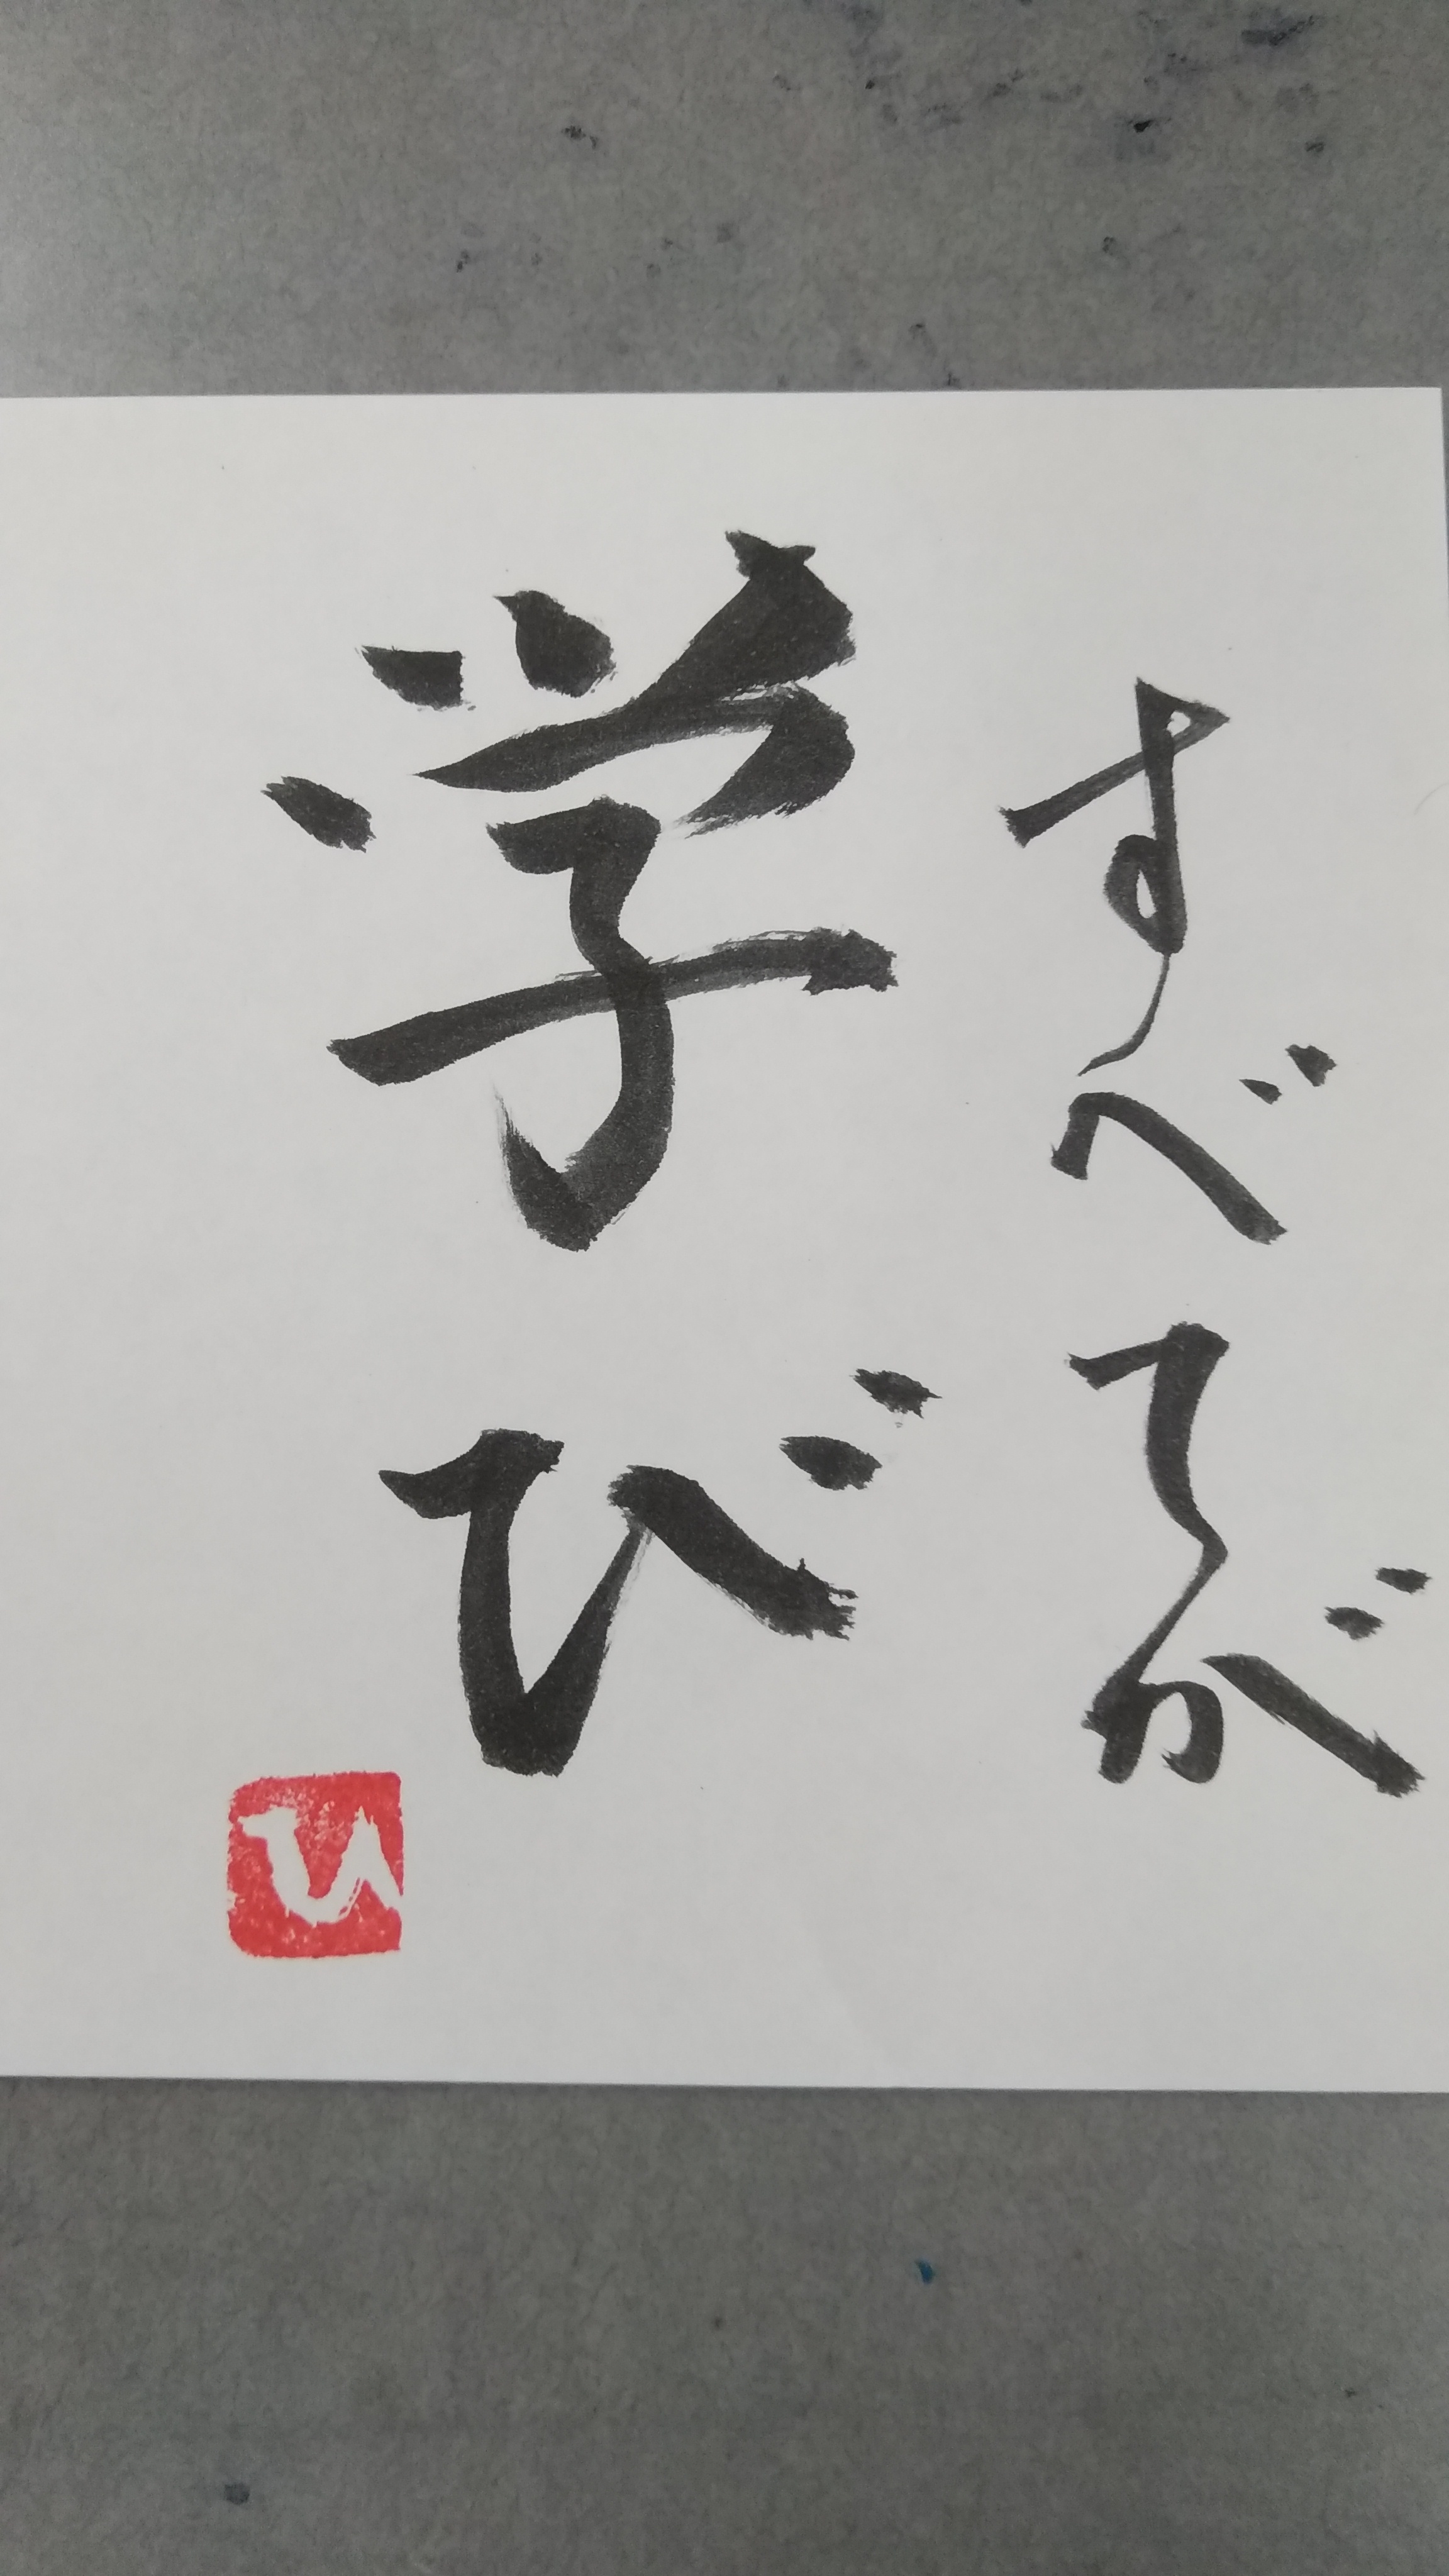 すべてが
学び
ひ